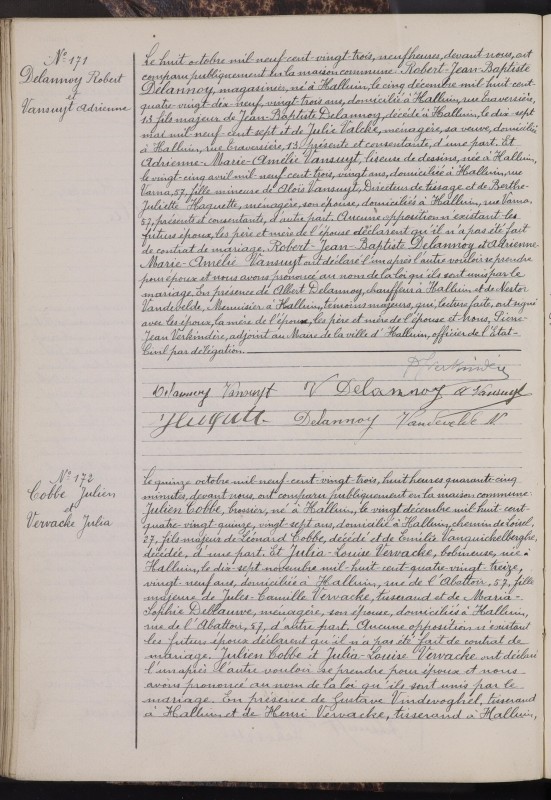 N° 171
Delannoy Robert
et
Vansuyt Adrienne
Le huit octobre mil neuf cent vingt trois, neuf heures, devant nous, ont
comparu publiquement en la maison commune Robert-Jean-Baptiste
Delannoy, magasinier, né à Halluin, le cinq décembre mil huit cent
quatre-vingt-dix-neuf, vingt trois ans, domicilié à Halluin, rue traversière,
13, fils majeur de Jean-Baptiste Delannoy, décédé à Halluin, le dix-sept
mai mil neuf cent sept et de Julie Valcke, ménagère, sa veuve, domiciliée
à Halluin, rue traversière, 13, présente et consentante, d'une part. Et
Adrienne-Marie-Amélie Vansuyt, liseuse de dessins, née à Halluin,
le vingt cinq avril mil neuf cent trois, vingt ans, domiciliée à Halluin, rue
Varna, 57, fille mineure de Aloïs Vansuyt, Directeur de tissage et de Berthe-
Juliette Huquette, ménagère, son épouse, domiciliés à Halluin, rue Varna,
57, présents et consentants, d'autre part. Aucune opposition n'existant les
futurs époux, les père et mère de l'épouse déclarent qu'il n'a pas été fait
de contrat de mariage. Robert-Jean-Baptiste Delannoy et Adrienne-
Marie-Amélie Vansuyt ont déclaré l'un après l'autre vouloir se prendre
pour époux et nous avons prononcé au nom de la loi qu'ils sont unis par le
mariage. En présence de Albert Delannoy, chauffeur à Halluin et de Nestor
Vandevelde, Menuisier à Halluin, témoins majeurs, qui, lecture faite, ont signé
avec les époux, la mère de l'époux, les père et mère de l'épouse et Nous, Pierre-
Jean Verkindère, adjoint au Maire de la ville d'Halluin, officier de l'Etat-
Civil par délégation.
Verkindère
Delannoy Vansuyt V Delannoy A Vansuyt
Delannoy Vandevelde N
N° 172
Cobbe Julien
et
Vervacke Julia
Le quinze octobre mil neuf-cent-vingt-trois, huit heures quarante-cinq
minutes, devant nous, ont comparu publiquement en la maison commune
Julien Cobbe, brossier, né à Halluin, le vingt décembre mil huit cent-
quatre-vingt-quinze, vingt-sept ans, domicilié à Halluin, chemin de Loisel,
27, fils majeur de Léonard Cobbe, décédé et de Emélie Vanquickelberghe,
décédée, d'une part. Et Julia-Louise Vervacke, bobineuse, née à
Halluin, le dix-sept novembre mil-huit cent-quatre-vingt-treize,
vingt-neuf ans, domiciliée à Halluin, rue de l'Abattoir, 57, fille
majeure de Jules-Camille Vervacke, tisserand et de Marie-
Sophie Dellauve, ménagère, son épouse, domiciliés à Halluin,
rue de l'Abattoir, 57, d'autre part. Aucune opposition n'existant
les futurs époux déclarent qu'il n'a pas été fait de contrat de
mariage. Julien Cobbe et Julia-Louise Vervacke ont déclaré
l'un après l'autre vouloir se prendre pour époux et nous
avons prononcé au nom de la loi qu'ils sont unis par le
mariage. En présence de Gustave Vindevoghel, tisserand
à Halluin et de Henri Vervacke, tisserand à Halluin,